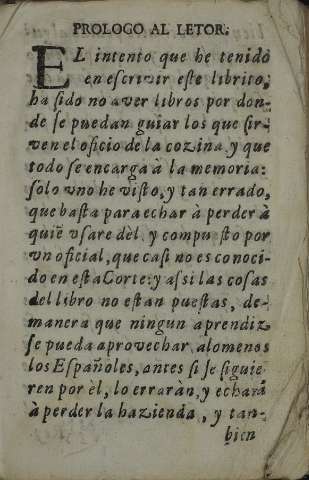 PROLOGO AL LETOR.
EL intento que he tenido
en escrivir este librito,
ha sido no aver libros por don-
de se puedan guiar los que sir-
ven el oficio de la cozina, y que
todo se encarga à la memoria:
solo vno he visto, y tan errado,
que basta para echar à perder à
quiẽ vsare dèl, y compu sto por
vn oficial, que casi no es conoci-
do en esta Corte: y assi las cosas
del libro no estan puestas, de-
manera que ningun aprendiz
se pueda aprovechar, alomenos
los Españoles, antes si se siguie-
ren por èl, lo erraràn, y echarà
à perder la hazienda, y tan-
bien